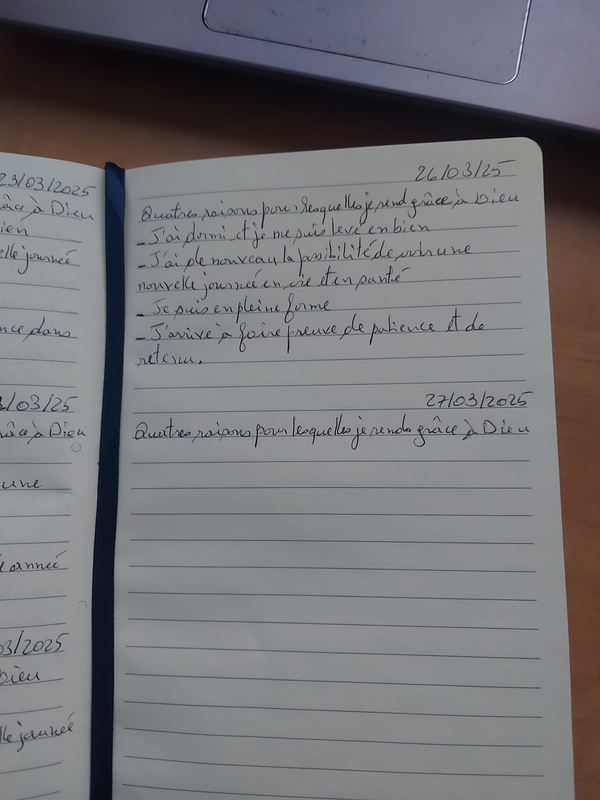 23/03/2025
âce à Dieu
ien
elle journée
nce dans
/03/25
âce à Dieu
une
année
03/2025
Dieu
lle journée
26/03/25
Quatres raisons pour lesquelles je rend grâce à Dieu
- J'ai dormi et je me suis levé en bien
- J'ai de nouveau la possibilité de vivre une
nouvelle journée en vie et en santé
- Je suis en pleine forme
- J'arrive à faire preuve de patience et de
retenu.
27/03/2025
Quatres raisons pour lesquelles je rends grâce à Dieu